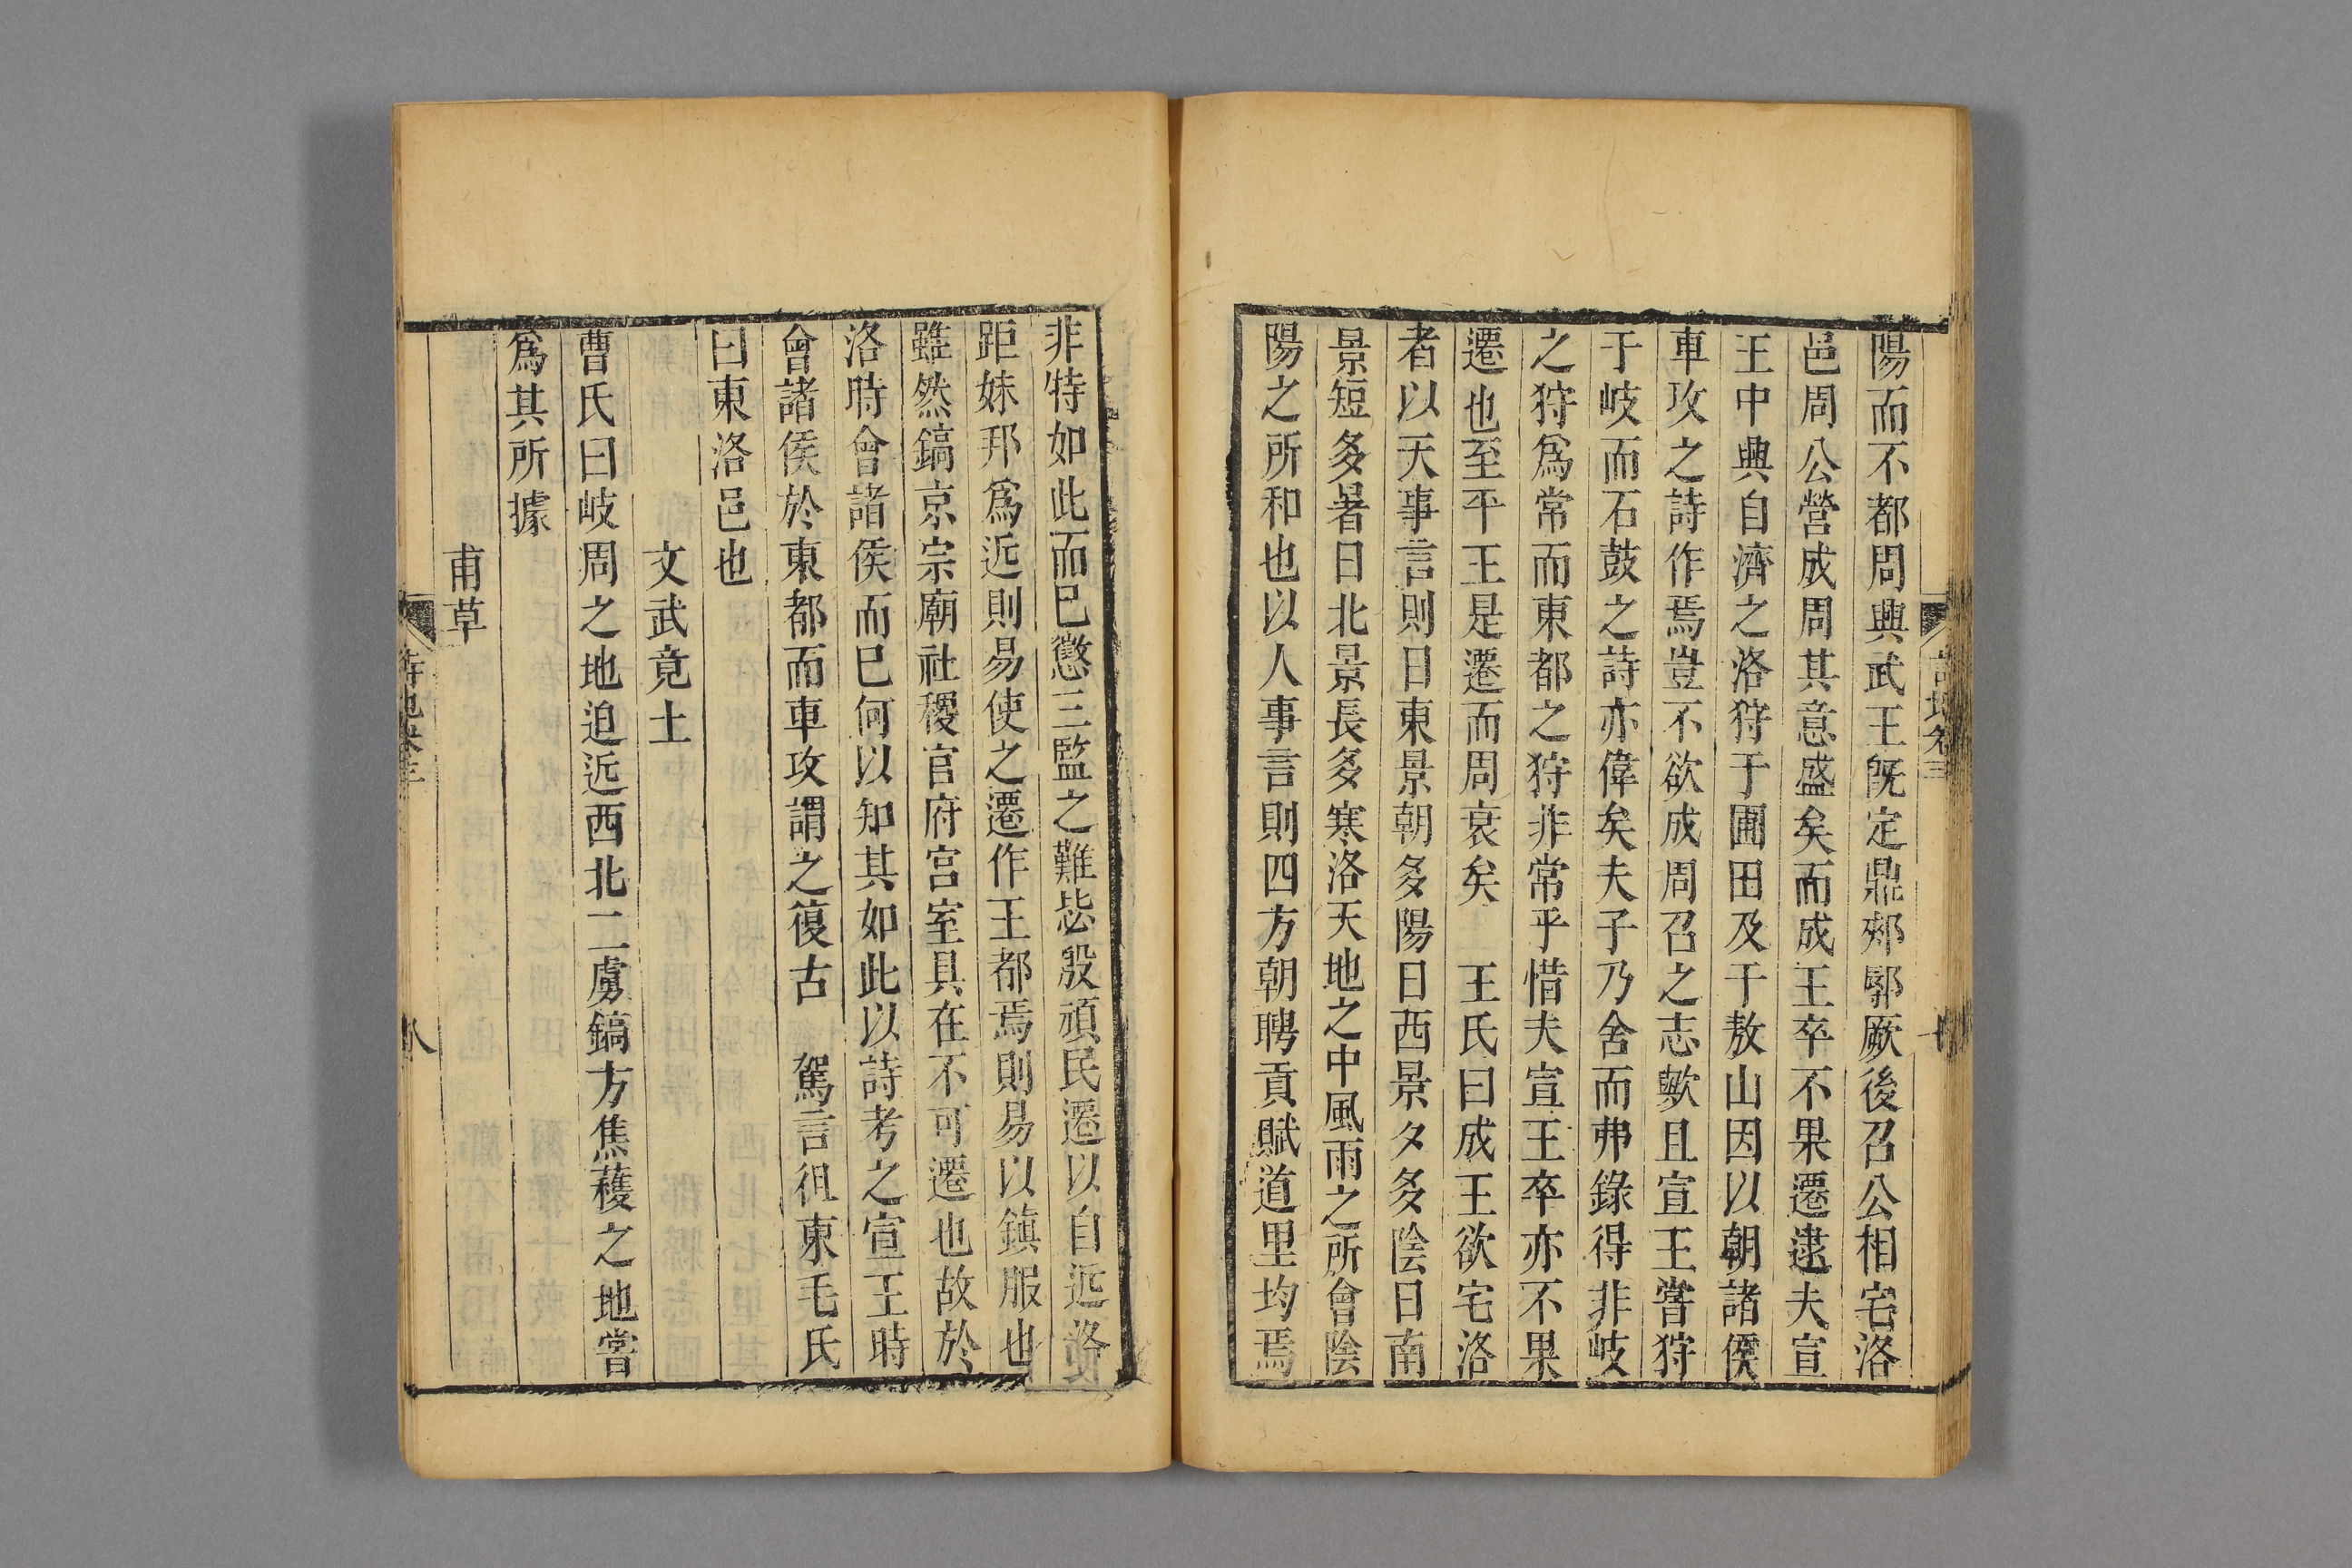 陽而不都周興武王旣定鼎郟鄏厥後召公相宅洛
邑周公營成周其意盛矣而成王卒不果遷逮夫宣
王中興自濟之洛狩于圃田及于敖山因以朝諸侯
車攻之詩作焉豈不欲成周召之志歟且宣王嘗狩
于岐而石鼓之詩亦偉矣夫子乃舍而弗錄得非岐
之狩爲常而東都之狩非常乎惜夫宣王卒亦不果
遷也至平王是遷而周衰矣　王氏曰成王欲宅洛
者以天事言則日東景朝多陽日西景夕多陰日南
景短多暑日北景長多寒洛天地之中風雨之所會陰
陽之所和也以人事言則四方朝聘貢賦道里均焉
非特如此而已懲三監之難毖殷頑民遷以自近洛
距妹邦爲近則易使之遷作王都焉則易以鎭服也
雖然鎬京宗廟社稷官府宮室具在不可遷也故於
洛時會諸侯而已何以知其如此以詩考之宣王時
會諸侯於東都而車攻謂之復古　駕言徂東毛氏
曰東洛邑也
文武竟土
曹氏曰岐周之地迫近西北二虜鎬方焦穫之地嘗
爲其所據
甫草
詩地卷三
八